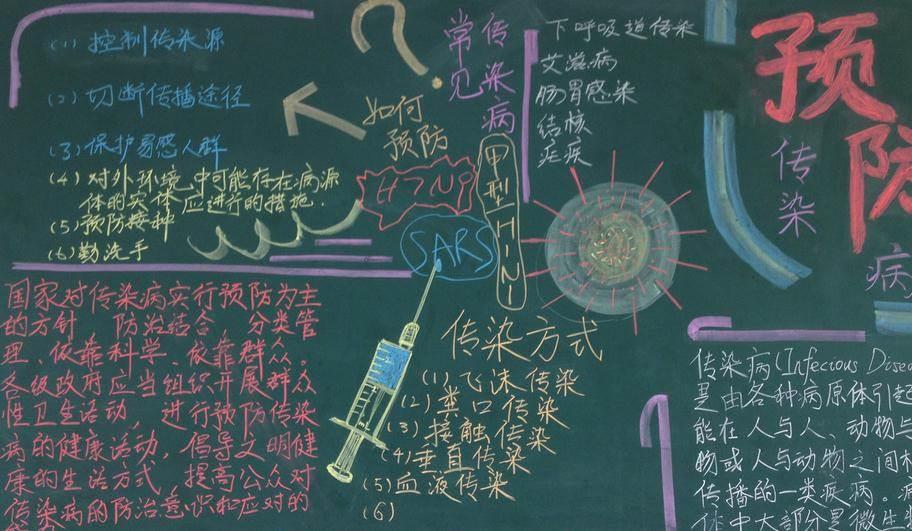 (1) 控制传染源
(2) 切断传播途径
(3) 保护易感人群
(4) 对外环境中可能存在病源
体的实体应进行的措施.
(5) 预防接种
(6) 勤洗手
?
如何
预防
常见
传染病
下呼吸道传染
艾滋病
肠胃感染
结核
疟疾
H7N9
甲型H1N1
SARS
预防
传染
病
国家对传染病实行预防为主
的方针 防治结合, 分类管
理、依靠科学、依靠群众。
各级政府应当组织开展群众
性卫生活动, 进行预防传染
病的健康活动, 倡导文明健
康的生活方式, 提高公众对
传染病的防治意识和应对的
传染方式
(1) 飞沫传染
(2) 粪口传染
(3) 接触传染
(4) 垂直传染
(5) 血液传染
(6)
传染病(Infecious Diseo
是由各种病原体引起
能在人与人、动物与
物或人与动物之间相
传播的一类疾病。病
体中大部分是微生